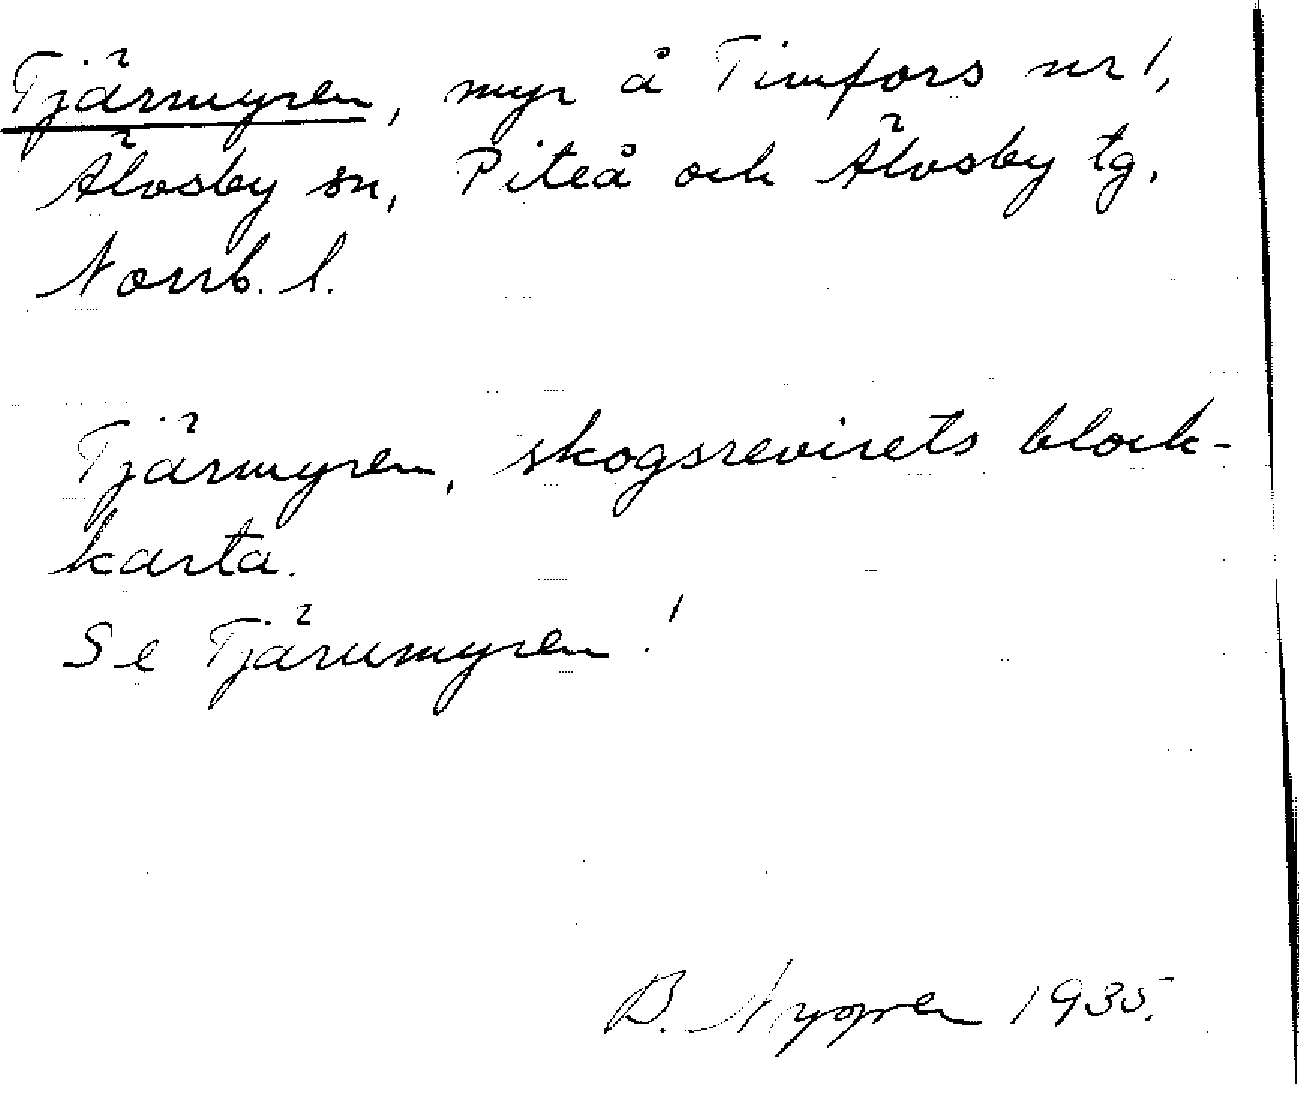 Tjärmyren, myr å Timfors nr 1,
Älvsby sn, Piteå och Älvsby tg,
Norrb. l.
Tjärmyren, skogsrevirets block-
karta.
Se Tjärumyren!
B. Nygren 1935.